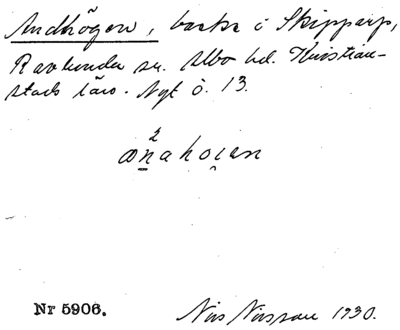 Andhögen, backe i Skipparp,
Ravlunda sn. Albo hd. Kristian-
stads län. Nyt ö. 13.
2
anahoien
Nr 5906.
Nils Nilsson 1930.